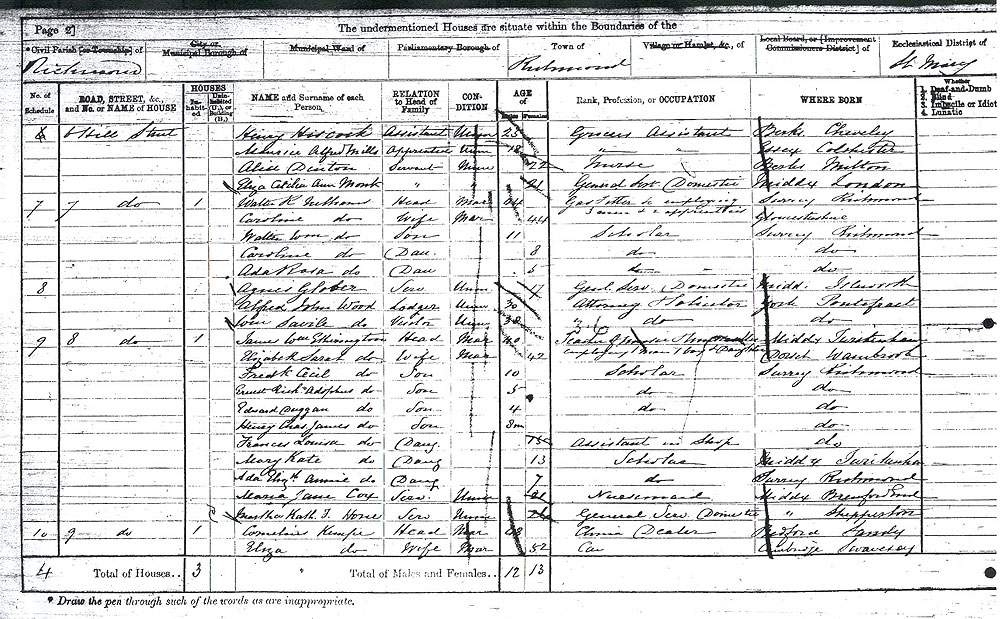 Page 2]
The undermentioned Houses are situate within the Boundaries of the
* Civil Parish [or Township] of
City or Municipal Borough of
Municipal Ward of
Parliamentary Borough of
Town of
Village or Hamlet, &c., of
Local Board, or [Improvement Commissioners District] of
Ecclesiastical District of
Richmond
Richmond
St. Mary
No. of Schedule
ROAD, STREET, &c., and No. or NAME of HOUSE
HOUSES
Inhabited
Uninhabited (U.), or Building (B.)
NAME and Surname of each Person
RELATION to Head of Family
CONDITION
AGE of
Males
Females
Rank, Profession, or OCCUPATION
WHERE BORN
Whether
1. Deaf-and-Dumb
2. Blind
3. Imbecile or Idiot
4. Lunatic
6 Hill Street Henry Assistant Unm 25 Grocers Assistant Berks
Alfred Mills Apprentice Unm 18 " " Essex Colchester
Alice Denton Servant Unm 22 Nurse Berks Milton
Eliza Cecilia Ann Monk " 21 General Serv Domestic Middx London
7 7 do 1 Walter R Head Mar 44 Gas Fitter &c employing 3 men & 2 apprentices Surrey Richmond
Caroline do Wife Mar 44 Gloucestershire
Walter Wm do Son 11 Scholar Surrey Richmond
Caroline do Dau 8 do do
Ada Rosa do Dau 5 do do
8 Agnes Glober Serv Unm 17 Genl. Serv. Domestic Midd. Isleworth
Alfred John Wood Lodger Unm 30 Attorney & Solicitor York Pontefract
Wm Savile do Visitor Unm 38 " do do
9 8 do 1 James Wm Head Mar 40 employing 1 man 1 boy & Daughter Middx Twickenham
Elizabeth Sarah do Wife Mar 42 Dorset Wambrook
Fredk Cecil do Son 10 Scholar Surrey Richmond
Ernest Richd Adolphus do Son 5 do do
Edward Duggan do Son 4 do do
Henry Chas James do Son 8m do
Frances Louisa do Daug 15 Assistant in Shop do
Mary Kate do Daug 13 Scholar Middx Twickenham
Ada Elizth Annie do Daug 7 do Surrey Richmond
Maria Jane Cox Serv. Unm 21 Nursemaid Middx Brentford End
Martha Kath. F. Horne Serv Unm General Serv. Domestic " Shepperton
10 9 do 1 Cornelius Kempe Head Mar China Dealer Bedford Sandy
Eliza do Wife Mar 52 Cambridge Swavesey
4 Total of Houses.. 3 Total of Males and Females.. 12 13
* Draw the pen through such of the words as are inappropriate.